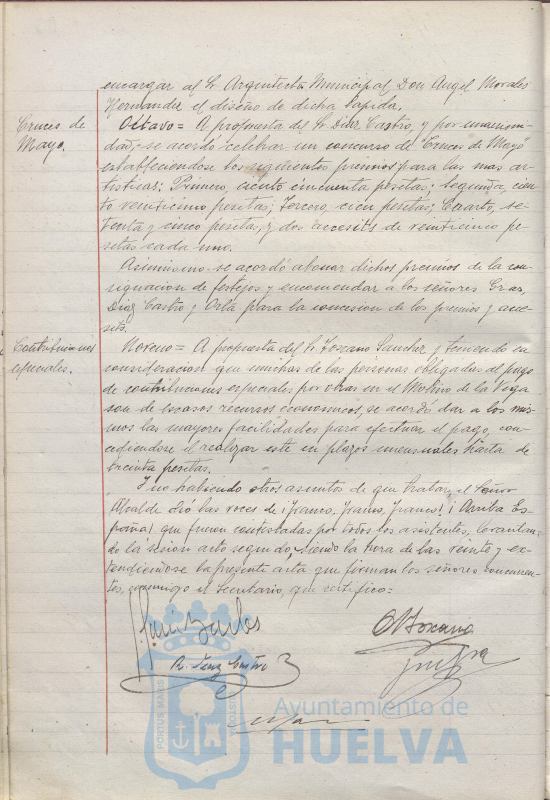 encargar al Sr Arquitecto Municipal Don Angel Morales
Hernandez el diseño de dicha lapida.
Cruces de
Mayo.
Octavo = A propuesta del Sr Diaz Castro, y por unanimi-
dad, se acordó celebrar un concurso de "Cruces de Mayo"
estableciendose los siguientes premios para las mas ar-
tisticas: Primero, ciento cincuenta pesetas; segunda, cien-
to veinticinco pesetas; Tercero, cien pesetas; Cuarto, se-
tenta y cinco pesetas, y dos accesits de veinticinco pe-
setas cada uno.
Asimismo se acordó abonar dichos premios de la con-
signacion de festejos y encomendar a los señores
Diaz Castro y Orta para la concesion de los premios y acce-
sits.
Contribuciones
especiales.
Noveno = A propuesta del Sr. Toscano Sanchez y teniendo en
consideracion que muchas de las personas obligadas al pago
de contribuciones especiales por obras en el Molino de la Vega
son de escasos recursos economicos, se acordó dar a los mis-
mos las mayores facilidades para efectuar el pago, con-
cediendose el realizar este en plazos mensuales hasta de
treinta pesetas.
I no habiendo otros asuntos de que tratar, el Señor
Alcalde dió las voces de ¡Franco, Franco, Franco!, ¡Arriba Es-
paña! que fueron contestadas por todos los asistentes, levantan-
do la sesion acto seguido, siendo la hora de las veinte y ex-
tendiendose la presente acta que firman los señores concurren-
tes, conmigo el Secretario, que certifico =
O Toscano
R. Diaz Castro
PORTUS MARIS
CUSTODIA
Ayuntamiento de
HUELVA